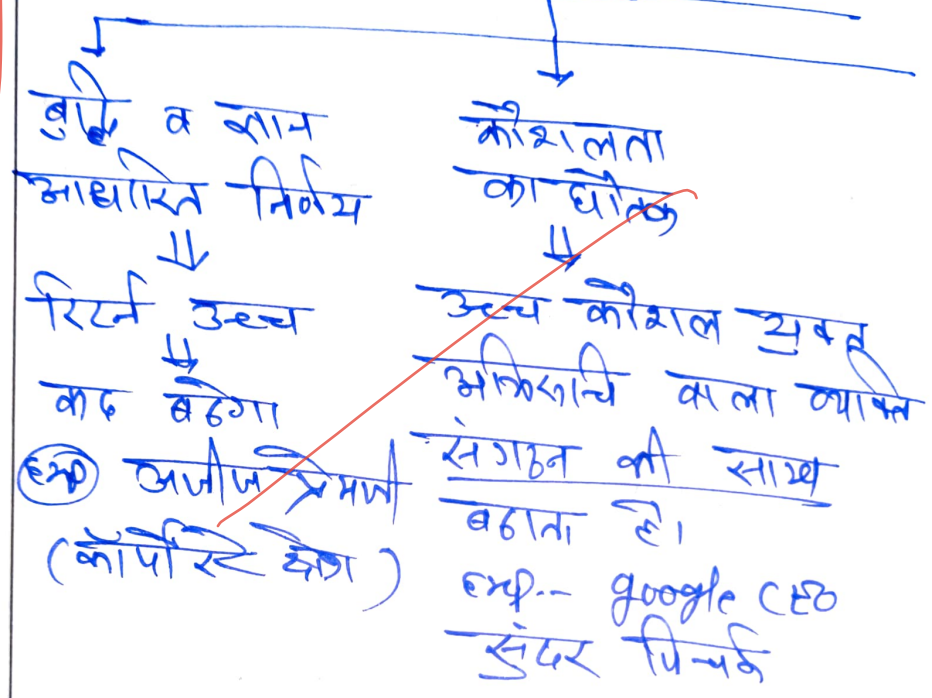 बुद्धि व ज्ञान
आधारित निर्णय
⇓
रिटर्न उच्च
⇓
कद बढेगा
Exp अजीज प्रेमजी
(कॉर्पोरेट क्षेत्र)
कौशलता
का घोतक
⇓
उच्च कौशल युक्त
अभिरूचि वाला व्यक्ति
संगठन की साख
बढाता है।
Exp.-- google CEO
सुंदर पिचई